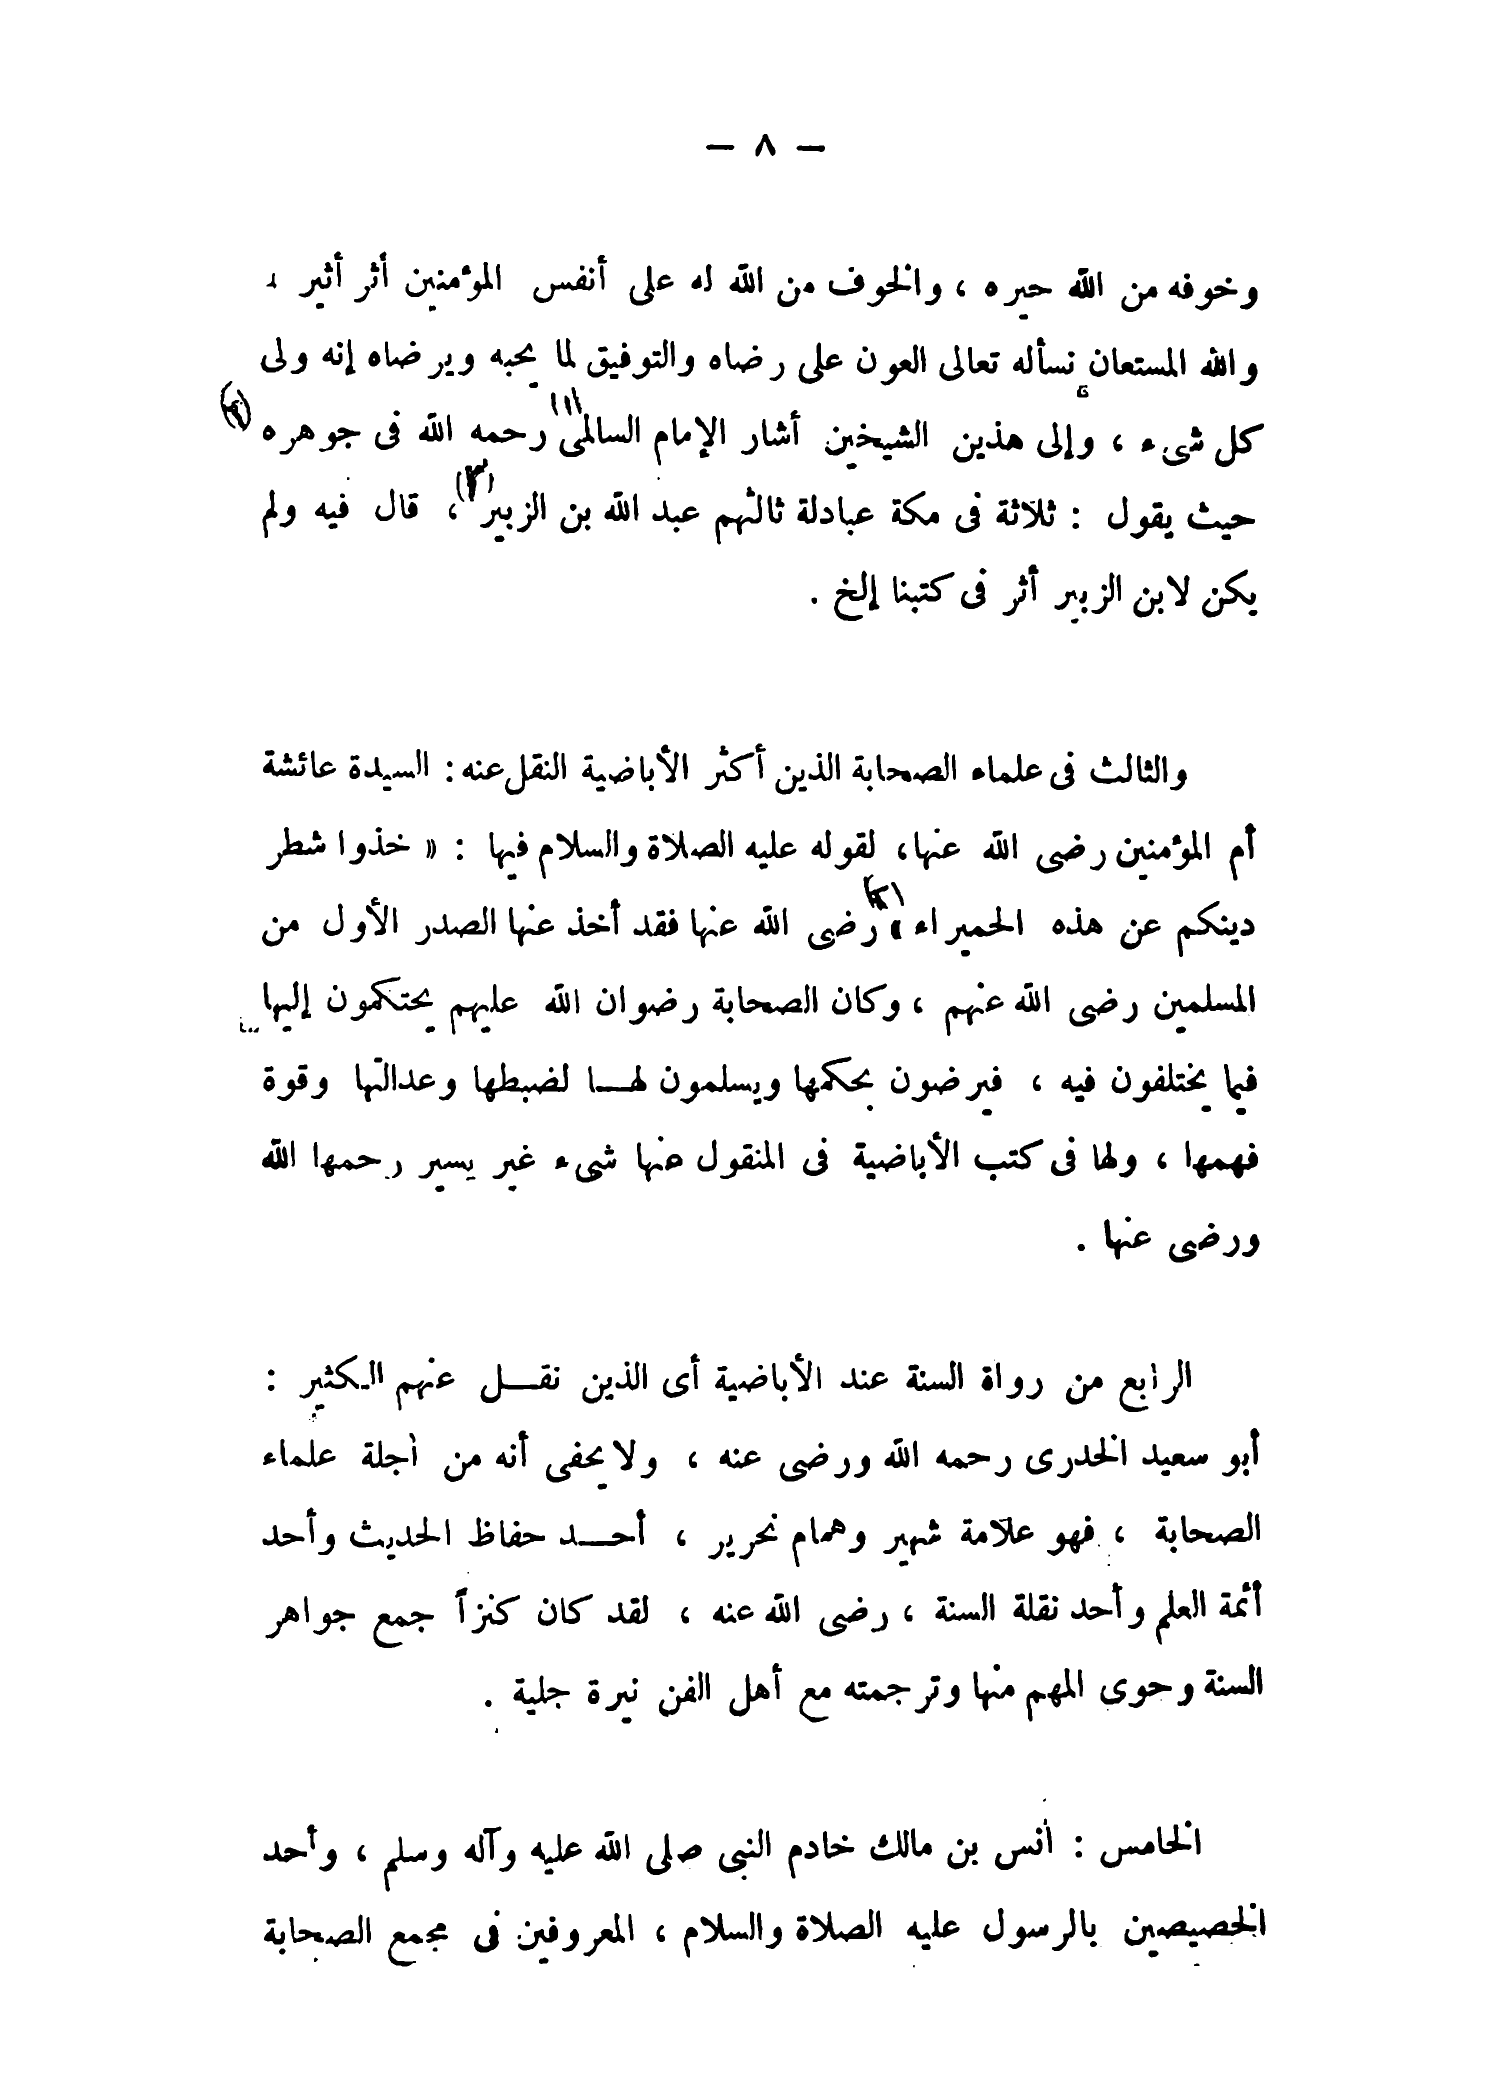 — ٨ —
وخوفه من الله حيره ، والخوف من الله له على أنفس المؤمنين أثر أثير ،
والله المستعان نسأله تعالى العون على رضاه والتوفيق لما يحبه ويرضاه إنه ولى
كل شىء ، وإلى هذين الشيخين أشار الإمام السالمى (١) رحمه الله فى جوهره (٢)
حيث يقول : ثلاثة فى مكة عبادلة ثالثهم عبد الله بن الزبير (٣) ، قال فيه ولم
يكن لابن الزبير أثر فى كتبنا إلخ .
والثالث فى علماء الصحابة الذين أكثر الأباضية النقل عنه : السيدة عائشة
أم المؤمنين رضى الله عنها ، لقوله عليه الصلاة والسلام فيها : « خذوا شطر
دينكم عن هذه الحميراء » رضى الله عنها فقد أخذ عنها الصدر الأول من
المسلمين رضى الله عنهم ، وكان الصحابة رضوان الله عليهم يحتكمون إليها
فيما يختلفون فيه ، فيرضون بحكمها ويسلمون لهــا لضبطها وعدالتها وقوة
فهمها ، ولها فى كتب الأباضية فى المنقول عنها شىء غير يسير رحمها الله
ورضى عنها .
الرابع من رواة السنة عند الأباضية أى الذين نقــل عنهم الكثير :
أبو سعيد الخدرى رحمه الله ورضى عنه ، ولا يخفى أنه من أجلة علماء
الصحابة ، فهو علامة شهير وهمام نحرير ، أحــد حفاظ الحديث وأحد
أئمة العلم وأحد نقلة السنة ، رضى الله عنه ، لقد كان كنزاً جمع جواهر
السنة وحوى المهم منها وترجمته مع أهل الفن نيرة جلية .
الخامس : أنس بن مالك خادم النبى صلى الله عليه وآله وسلم ، وأحد
الخصيصين بالرسول عليه الصلاة والسلام ، المعروفين فى مجمع الصحابة